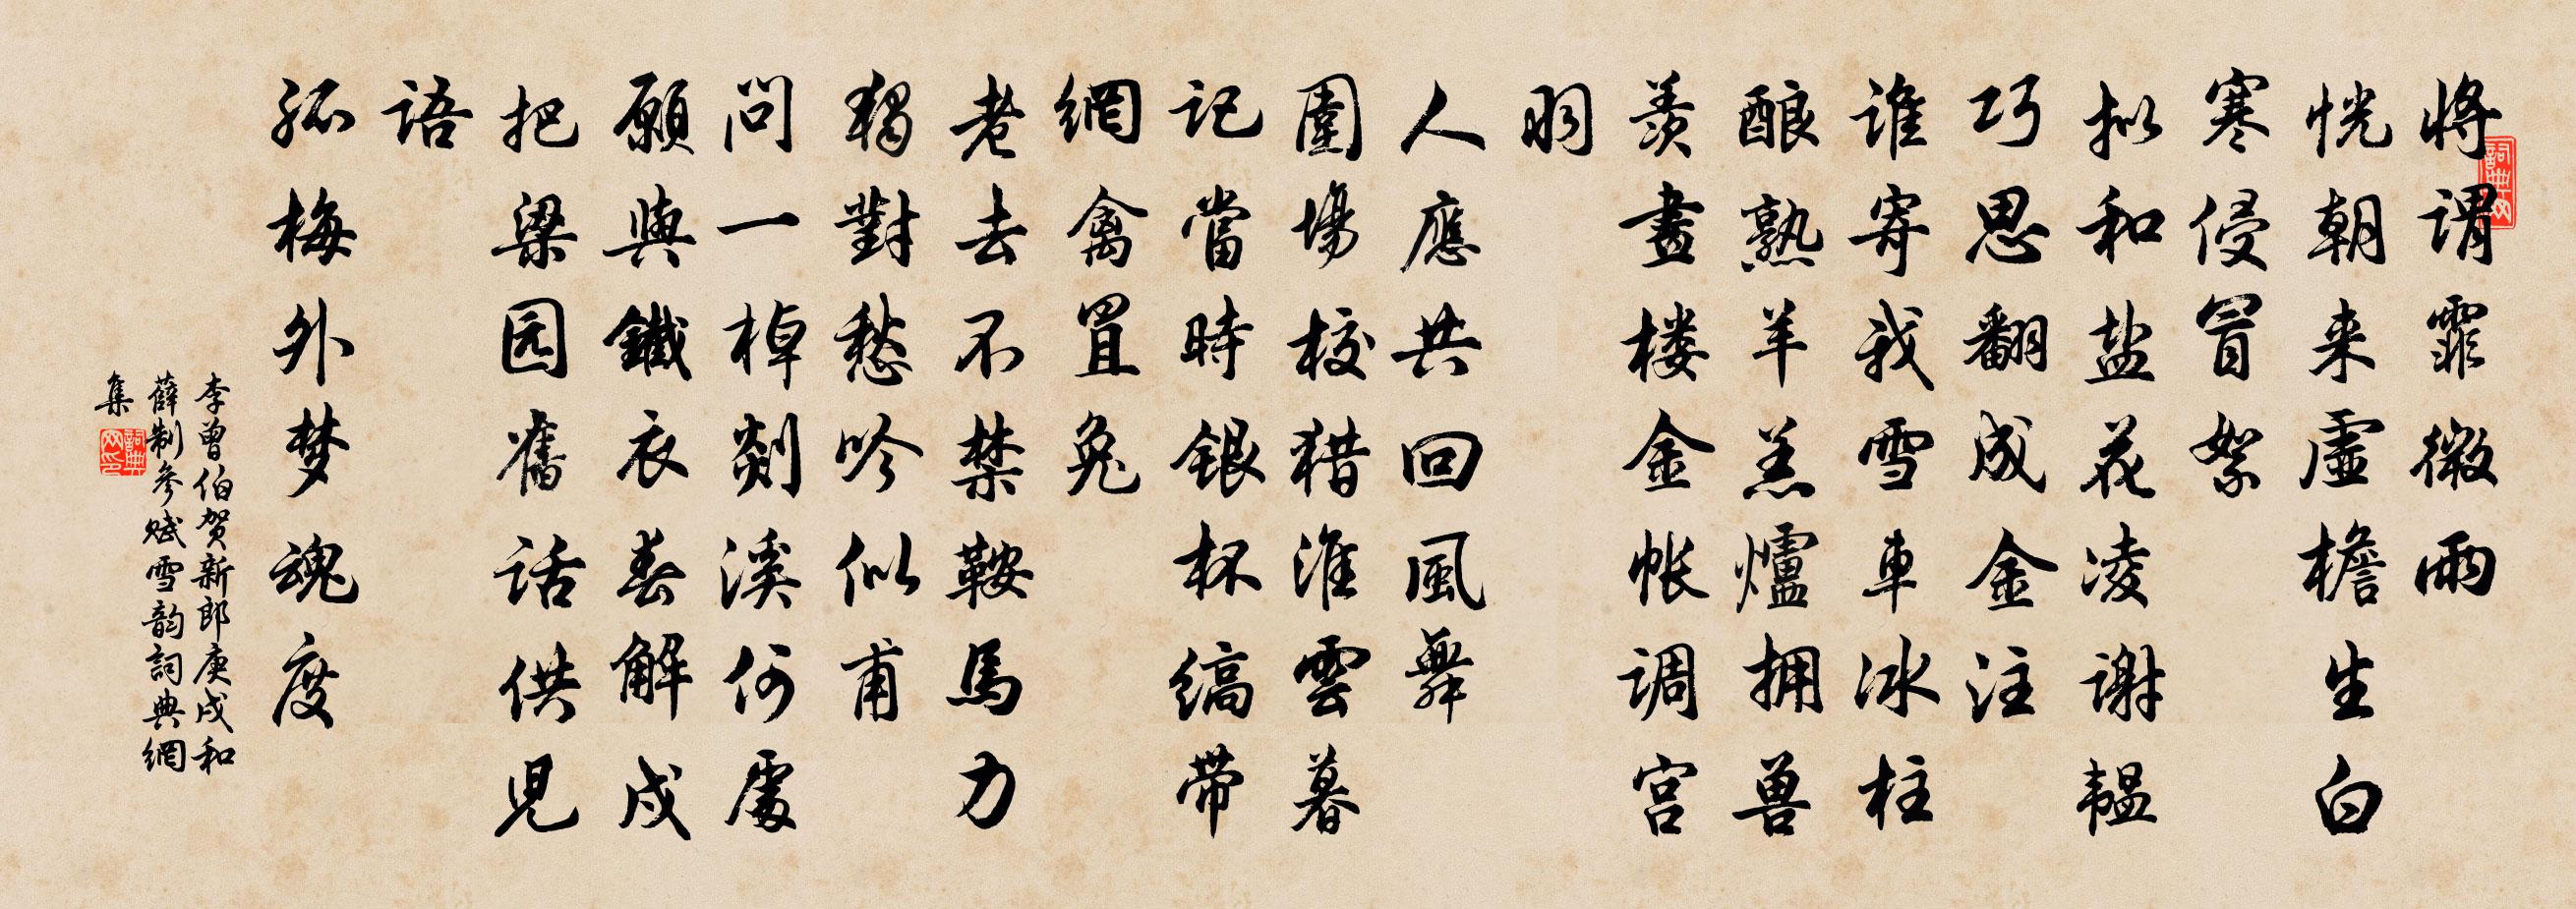 將謂霏微雨
恍朝来虛檐生白
寒侵冒絮
拟和盐花凌谢韫
巧思翻成金注
谁寄我雪车冰柱
酿熟羊羔爐拥兽
羡畫楼金帐调宫
羽
人應共回風舞
圍場校猎淮雲暮
記當時銀杯缟带
網禽罝兔
老去不禁鞍馬力
獨對愁吟似甫
問一棹剡溪何處
願與鐵衣春解戍
把梁园舊话供兒
語
孤梅外梦魂度
李曾伯贺新郎庚戌和
薛制參赋雪韵詞典網
集
詞典网
詞典网印